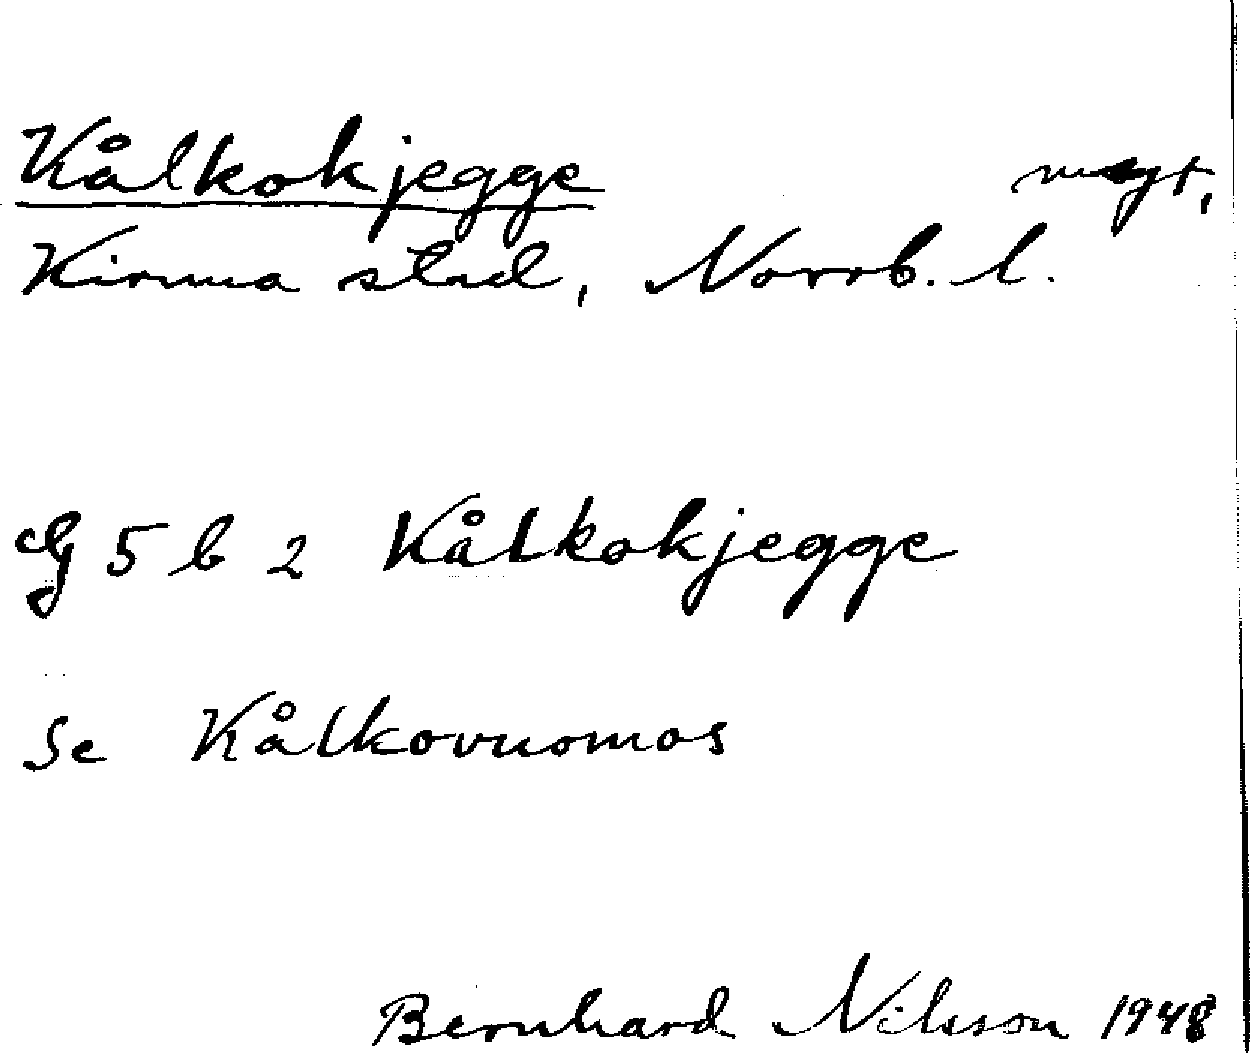 Kålkokjegge myt,
Kiruna stad, Norrb. l.
G 5 b 2 Kålkokjegge
Se Kålkovuomos
Bernhard Nilsson 1948